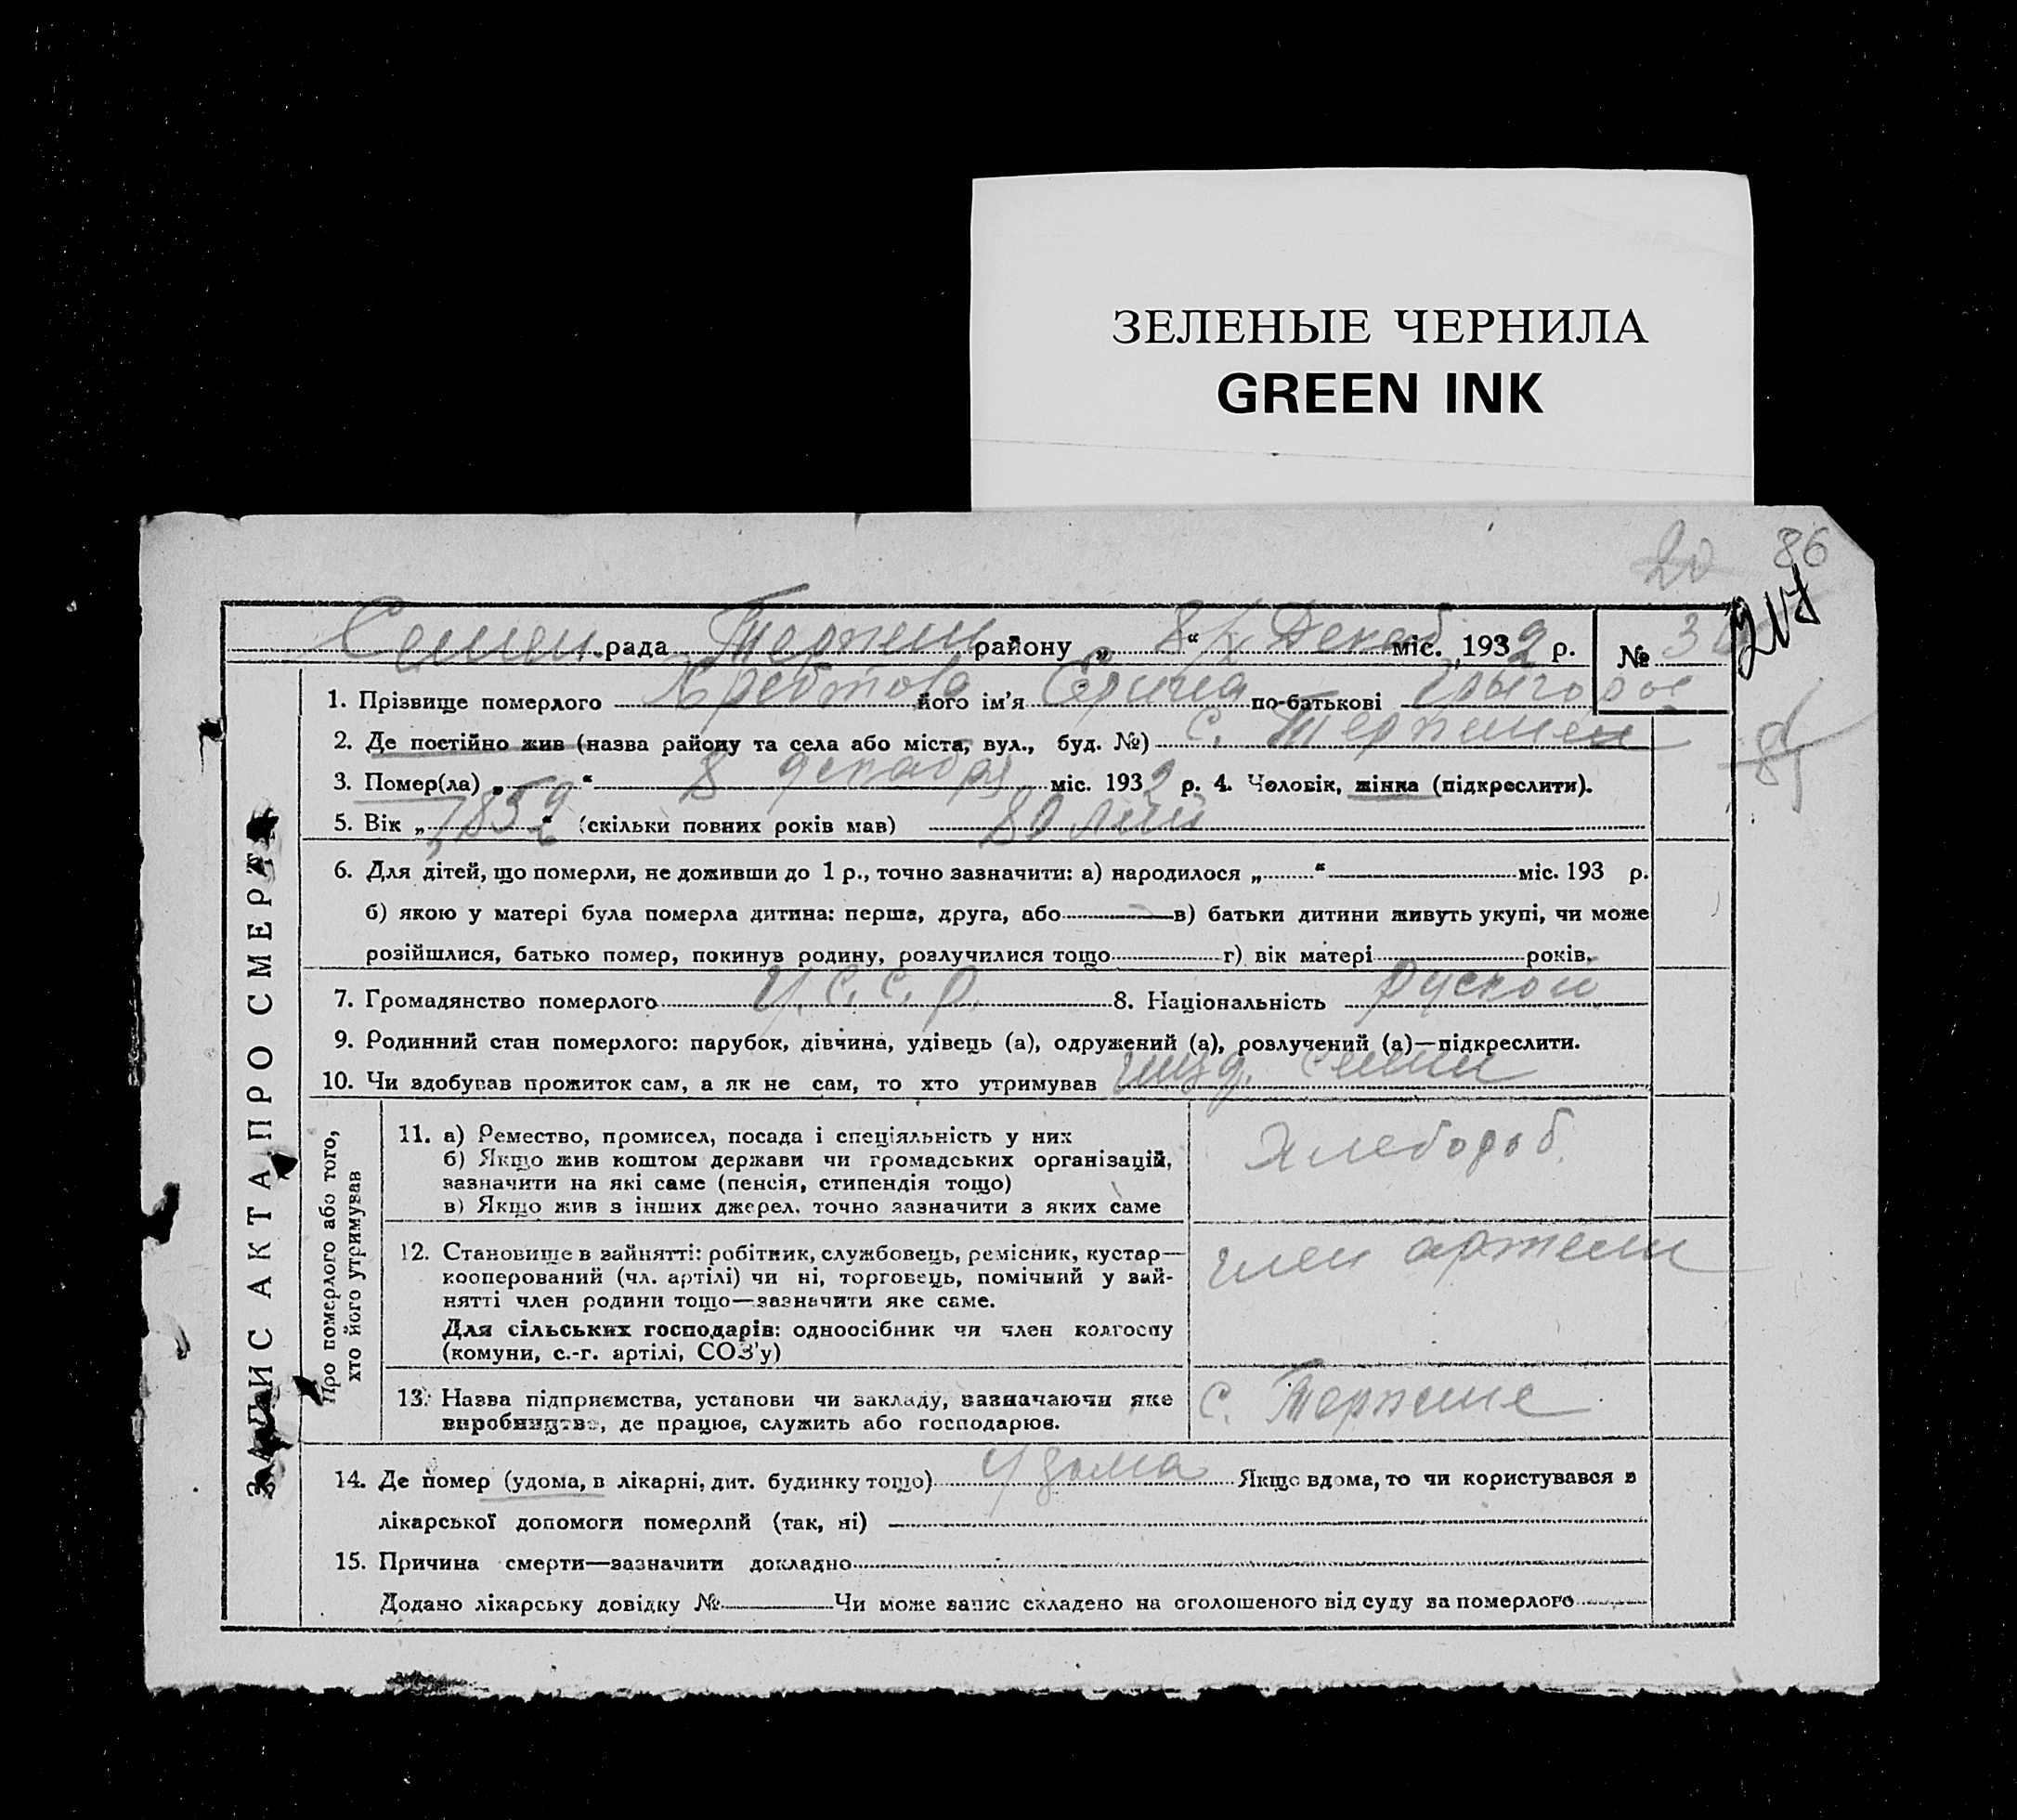 ЗЕЛЕНЫЕ ЧЕРНИЛА
GREEN INK
20 86
217
рада района „ 8 “ Декаб міс. 1932 р. № 3
1. Прізвище померлого його ім'я по-батькові
2. Де постійно жив (назва району та села або міста, вул., буд. №) с.
3. Помер(ла) „ “ 8 декабря міс. 1932 р. 4. Чоловік, жінка (підкреслити).
5. Вік „ 1852 “ (скільки повних років мав) 80
6. Для дітей, що померли, не доживши до 1 р., точно зазначити: а) народилося „ “ міс. 193 р.
б) якою у матері була померла дитина: перша, друга, або в) батьки дитини живуть укупі, чи може
розійшлися, батько помер, покинув родину, розлучилися тощо г) вік матері років.
7. Громадянство померлого У.С.С.Р. 8. Національність руской
9. Родинний стан померлого: парубок, дівчина, удівець (а), одружений (а), розлучений (а)—підкреслити.
10. Чи здобував прожиток сам, а як не сам, то хто утримував
ЗАПИС АКТА ПРО СМЕРТЬ
Про померлого або того,
хто його утримував
11. а) Ремество, промисел, посада і спеціяльність у них
б) Якщо жив коштом держави чи громадських організацій,
зазначити на які саме (пенсія, стипендія тощо)
в) Якщо жив з інших джерел, точно зазначити з яких саме
Хлебороб.
12. Становище в зайнятті: робітник, службовець, ремісник, кустар—
кооперований (чл. артілі) чи ні, торговець, помічний у зай-
нятті член родини тощо—зазначити яке саме.
Для сільських господарів: одноосібник чи член колгоспу
(комуни, с.-г. артілі, СОЗ'у)
член артели
13. Назва підприємства, установи чи закладу, зазначаючи яке
виробництво, де працює, служить або господарює.
с. Терпение
14. Де помер (удома, в лікарні, дит. будинку тощо) Удома Якщо вдома, то чи користувався з
лікарської допомоги померлий (так, ні)
15. Причина смерти—зазначити докладно
Додано лікарську довідку № Чи може запис складено на оголошеного від суду за померлого